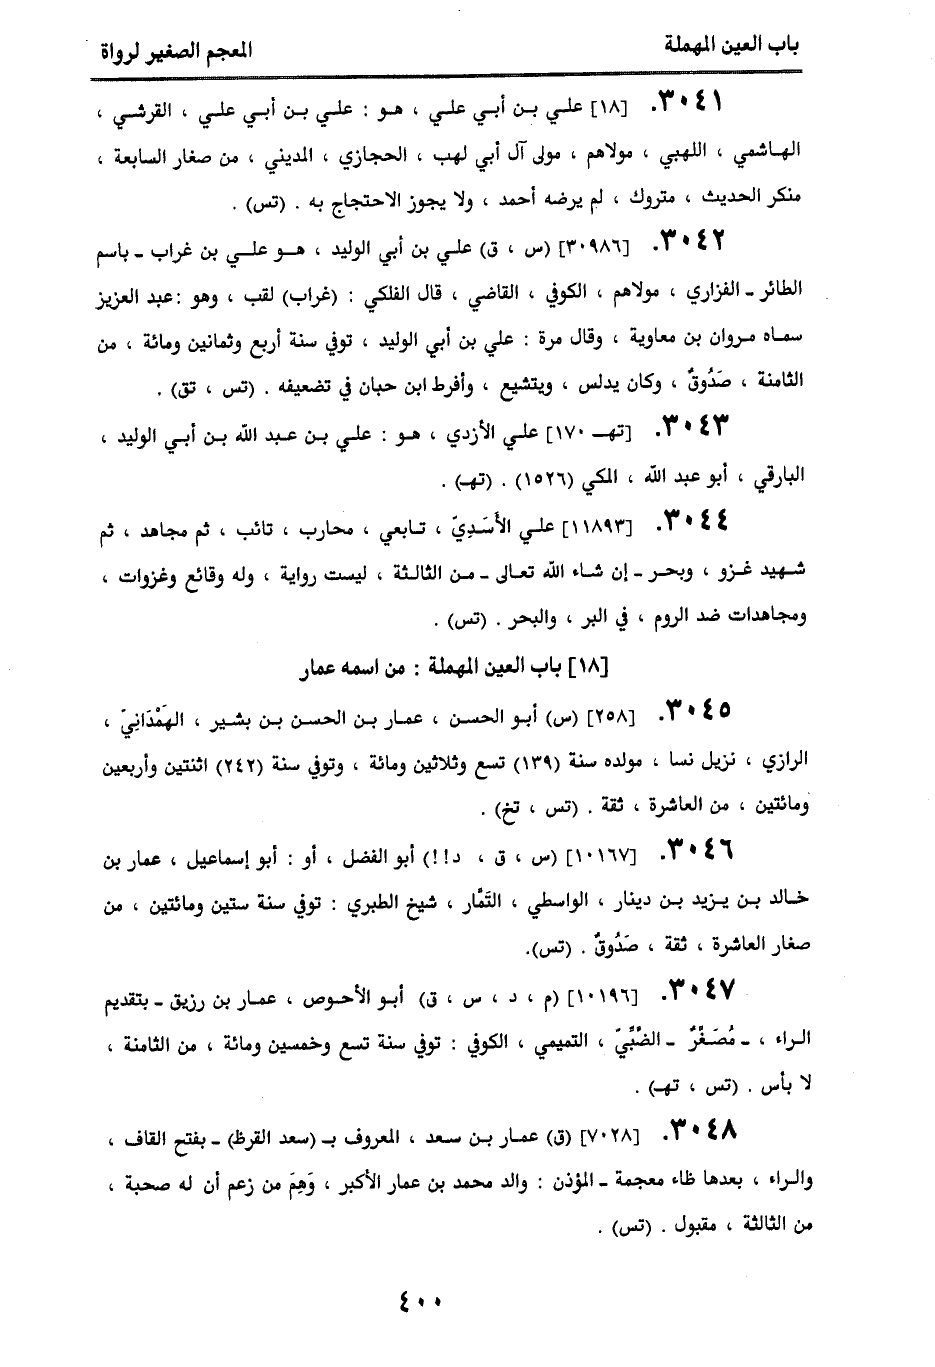 باب العين المهملة
المعجم الصغير لرواة
٣٠٤١. [١٨] علي بن أبي علي ، هو : علي بن أبي علي ، القرشي ،
الهاشمي ، اللهبي ، مولاهم ، مولى آل أبي لهب ، الحجازي ، المديني ، من صغار السابعة ،
منكر الحديث ، متروك ، لم يرضه أحمد ، ولا يجوز الاحتجاج به . (تس) .
٣٠٤٢. [٣٠٩٨٦] (س ، ق) علي بن أبي الوليد ، هو علي بن غراب ـ باسم
الطائر ـ الفزاري ، مولاهم ، الكوفي ، القاضي ، قال الفلكي : (غراب) لقب ، وهو :عبد العزيز
سماه مروان بن معاوية ، وقال مرة : علي بن أبي الوليد ، توفي سنة أربع وثمانين ومائة ، من
الثامنة ، صَدُوقٌ ، وكان يدلس ، ويتشيع ، وأفرط ابن حبان في تضعيفه . (تس ، تق) .
٣٠٤٣. [تهـ ١٧٠] علي الأزدي ، هو : علي بن عبد الله بن أبي الوليد ،
البارقي ، أبو عبد الله ، المكي (١٥٢٦) . (تهـ) .
٣٠٤٤. [١١٨٩٣] علي الأَسَدِيّ ، تابعي ، محارب ، تائب ، ثم مجاهد ، ثم
شهيد غزو ، وبحر ـ إن شاء الله تعالى ـ من الثالثة ، ليست رواية ، وله وقائع وغزوات ،
ومجاهدات ضد الروم ، في البر ، والبحر . (تس) .
[١٨] باب العين المهملة : من اسمه عمار
٣٠٤٥. [٢٥٨] (س) أبو الحسن ، عمار بن الحسن بن بشير ، الهَمْدَانِيّ ،
الرازي ، نزيل نسا ، مولده سنة (١٣٩) تسع وثلاثين ومائة ، وتوفي سنة (٢٤٢) اثنتين وأربعين
ومائتين ، من العاشرة ، ثقة . (تس ، تخ) .
٣٠٤٦. [١٠١٦٧] (س ، ق ، د!!) أبو الفضل ، أو : أبو إسماعيل ، عمار بن
خالد بن يزيد بن دينار ، الواسطي ، التَمَّار ، شيخ الطبري : توفي سنة ستين ومائتين ، من
صغار العاشرة ، ثقة ، صَدُوقٌ . (تس).
٣٠٤٧. [١٠١٩٦] (م ، د ، س ، ق) أبو الأحوص ، عمار بن رزيق ـ بتقديم
الراء ، ـ مُصَغَّرٌ ـ الضَّبِّيّ ، التميمي ، الكوفي : توفي سنة تسع وخمسين ومائة ، من الثامنة ،
لا بأس . (تس ، تهـ) .
٣٠٤٨. [٧٠٢٨] (ق) عمار بن سعد ، المعروف بـ (سعد القرظ) ـ بفتح القاف ،
والراء ، بعدها ظاء معجمة ـ المؤذن : والد محمد بن عمار الأكبر ، وَهِمَ من زعم أن له صحبة ،
من الثالثة ، مقبول . (تس) .
٤٠٠